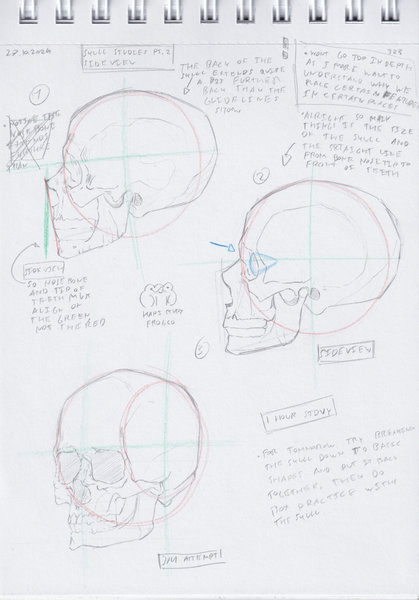 28.10.2024
SKULL STUDIES PT. 2
SIDEVIEW
THE BACK OF THE
SKULL EXTENDS QUITE
A BIT FURTHER
BACK THAN THE
GUIDELINES
SHOW
WONT GO TOO IN DEPTH
AS I MORE WANT TO
UNDERSTAND WHY WE
PLACE CERTAIN FEATURES
IN CERTAIN PLACES
ALRIGHT SO MAIN
THINGS IS THE SIZE
OF THE SKULL AND
THE STRAIGHT LINE
FROM BONE NOSE TIP TO
FRONT OF TEETH
1
2
SIDEVIEW
SO NOSE BONE
AND TIP OF
TEETH MUST
ALIGN OF
THE GREEN
NOT THIS RED
3
SIDEVIEW
1 HOUR STUDY
FOR TOMORROW TRY BREAKING
THE SKULL DOWN TO BASIC
SHAPES AND PUT IT BACK
TOGETHER, THEN DO
PRACTICE WITH
THE SKULL
ATTEMPT